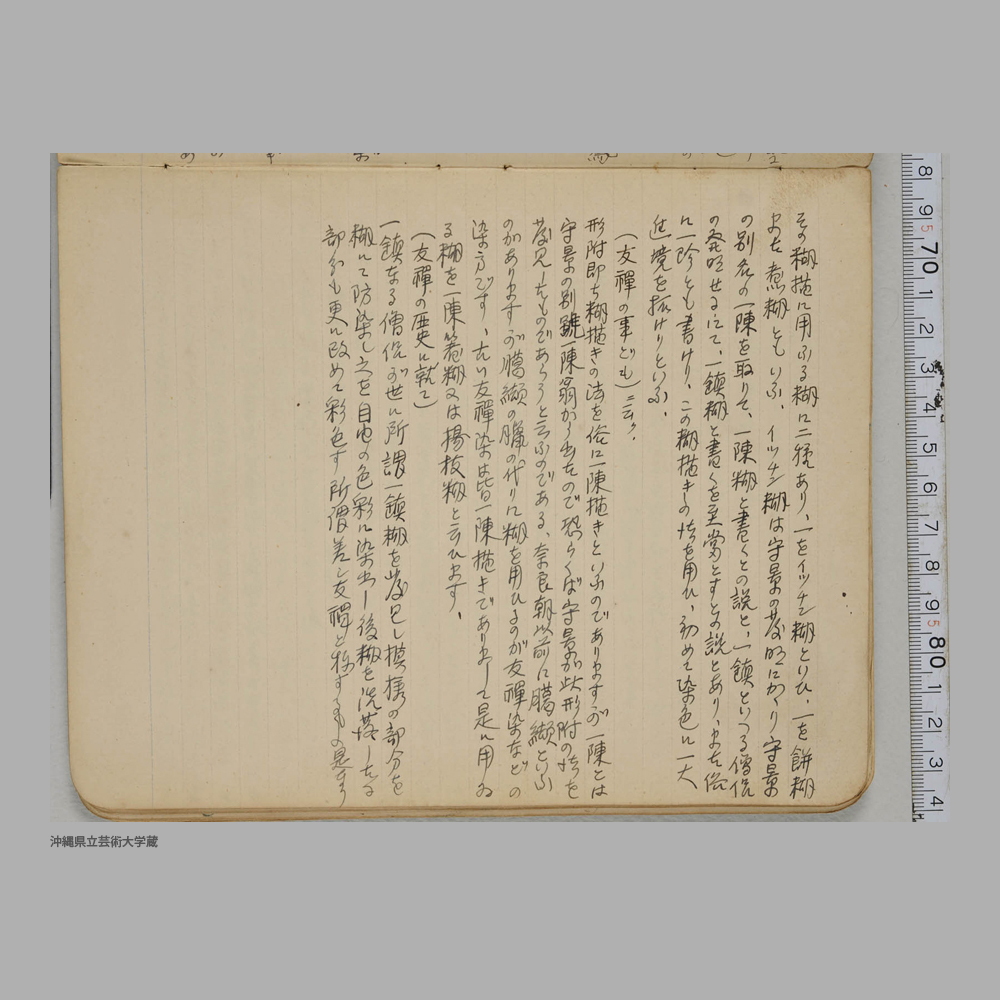 その糊描に用ふる糊に二種あり、一をイッチン糊といひ、一を餅糊
また煮糊ともいふ、イッチン糊は守景の発明にかゝり守景
の別名の一陳を取りて、一陳糊と書くとの説と、一鎮といつる僧侶
の発明せるにて、一鎮糊と書くを至当とすとの説とあり、また俗
に一珍とも書けり、この糊描きの法を用ひ、初めて染色に一大
進境を拓けりといふ、
(友禪の事ども)ニ云ク、
形附即ち糊描きの法を俗に一陳描きといふのでありますが一陳とは
守景の別號一陳翁から出たので恐らくば守景が此形附の法を
発見したものであらうと云ふのである、奈良朝以前に﨟纈といふ
のがありますが﨟纈の臘の代りに糊を用ひるのが友禪染などの
染方です、古い友禪染は皆一陳描きでありまして是に用ゐ
る糊を一陳箸糊又は揚枝糊と云ひます、
(友禪の歴史に就て)
一鎮なる僧侶が世に所謂一鎮糊を発見し模様の部分を
糊にて防染し之を自由の色彩に染出し後糊を洗落したる
部分も更に改めて彩色す所謂差シ友禪と称するもの是なり
8 9 5 70 1 2 3 4 5 6 7 8 9 5 80 1 2 3 4
沖縄県立芸術大学蔵